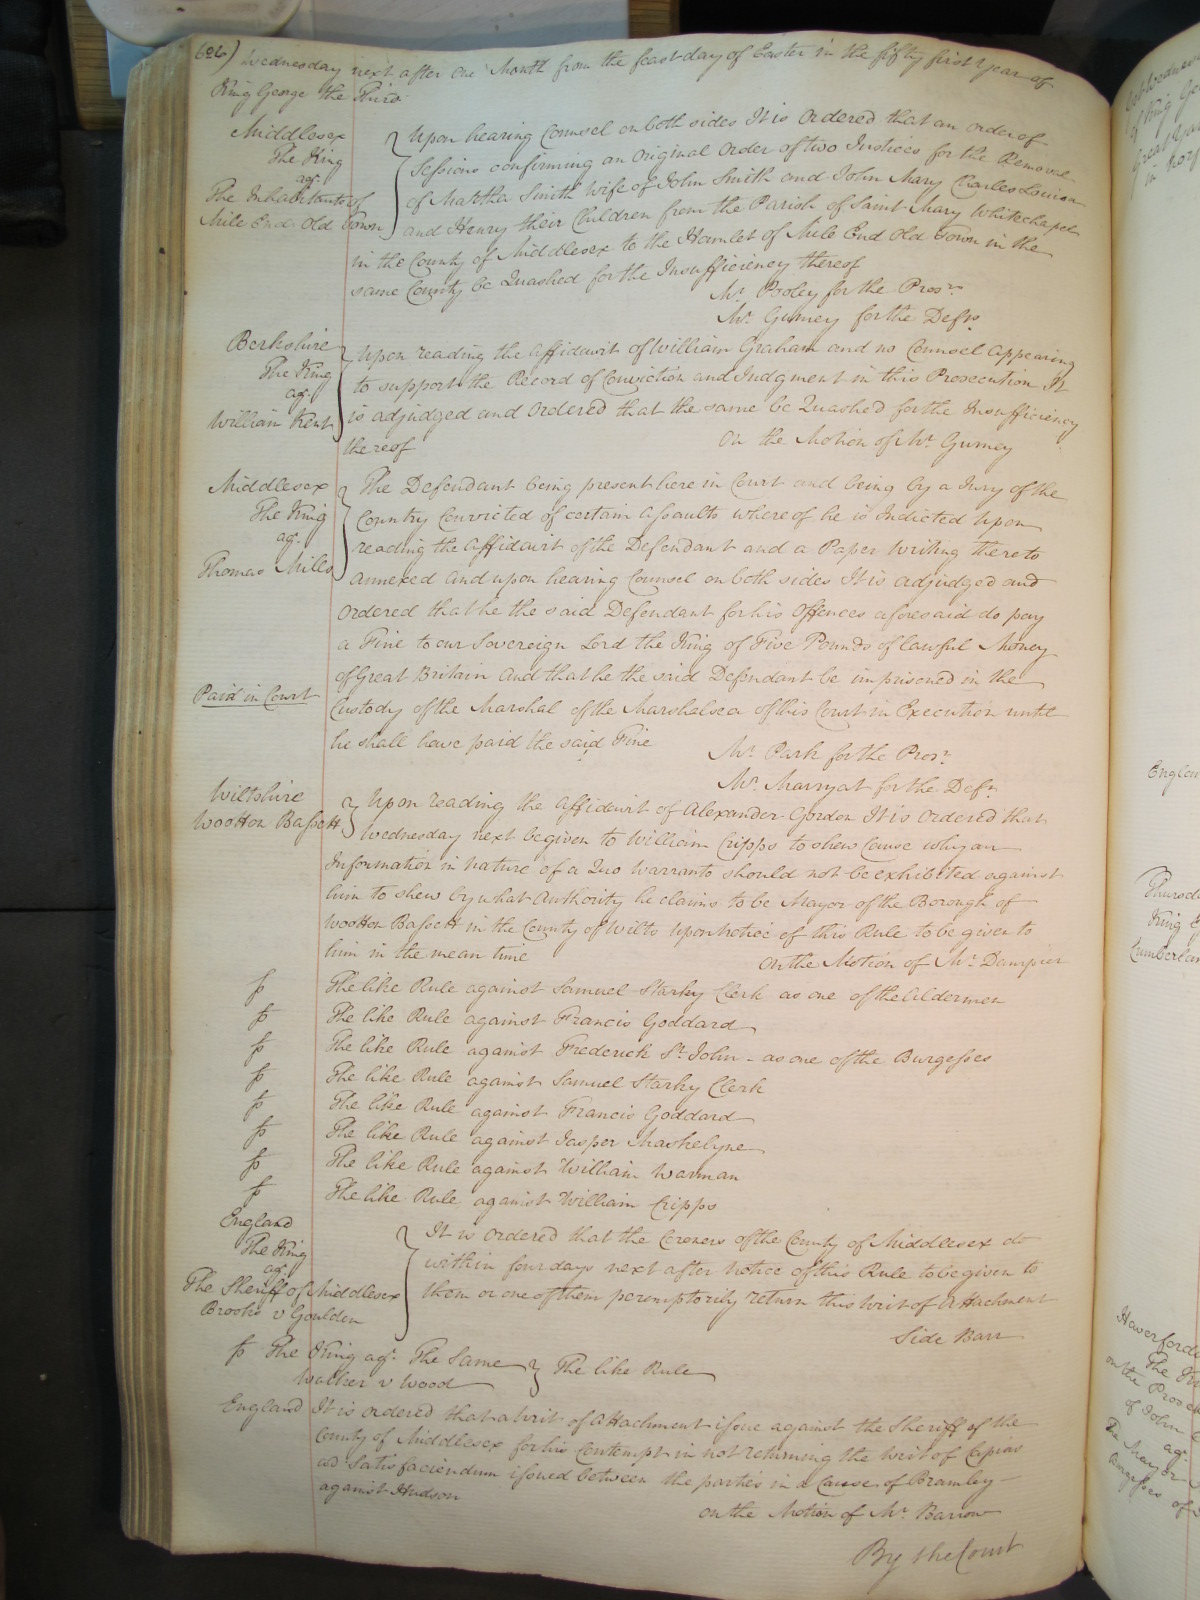 606) Wednesday next after one Month from the feast day of Easter in the fifty first Year of
King George the Third
Middlesex
The King
agt.
The Inhabitants of
Mile End Old Town
Upon hearing Counsel on both sides It is Ordered that an order of
Sessions confirming an Original Order of two Justices for the Removal
of Martha Smith Wife of John Smith and John Mary Charles Louisa
and Henry their Children from the Parish of Saint Mary Whitechapel
in the County of Middlesex to the Hamlet of Mile End Old Town in the
same County be Quashed for the Insufficiency thereof
Mr. Pooley for the Prosr.
Mr. Gurney for the Defts.
Berkshire
The King
agt.
William Kent
Upon reading the affidavit of William Graham and no Counsel appearing
to support the Record of Conviction and Judgment in this Prosecution It
is adjudged and Ordered that the same be Quashed for the Insufficiency
thereof
On the Motion of Mr. Gurney
Middlesex
The King
agt.
Thomas Mills
The Defendant being present here in Court and being by a Jury of the
Country Convicted of certain assaults whereof he is Indicted Upon
reading the affidavit of the Defendant and a Paper Writing thereto
annexed and upon hearing Counsel on both sides It is adjudged and
Ordered that he the said Defendant for his Offences aforesaid do pay
a Fine to our Sovereign Lord the King of Five Pounds of lawful Money
of Great Britain and that he the said Defendant be imprisoned in the
Paid in Court
Custody of the Marshal of the Marshalsea of this Court in Execution until
he shall have paid the said Fine
Mr. Park for the Prosr.
Mr. Marryat for the Deft.
Wiltshire
Wootton Bassett
Upon reading the affidavit of Alexander Gordon It is Ordered that
Wednesday next be given to William Cripps to shew Cause why an
Information in nature of a Quo Warranto should not be exhibited against
him to shew by what authority he claims to be Mayor of the Borough of
Wootton Bassett in the County of Wilts upon notice of this Rule to be given to
him in the mean time
On the Motion of Mr. Dampier
The like Rule against Samuel Starky Clerk as one of the Aldermen
The like Rule against Francis Goddard
The like Rule against Frederick St. John - as one of the Burgesses
The like Rule against Samuel Starky Clerk
The like Rule against Francis Goddard
The like Rule against Jasper Maskelyne
The like Rule against William Warman
The like Rule against William Cripps
England
The King
agt.
The Sheriff of Middlesex
Brooks v Goulden
It is Ordered that the Coroners of the County of Middlesex do
within four days next after notice of this Rule to be given to
them or one of them peremptorily return this writ of attachment
Side Barr
The King agt. The Same
Walker v Wood
The like Rule
England It is ordered that a writ of attachment issue against the Sheriff of the
County of Middlesex for his Contempt in not returning the writ of Capias
ad satisfaciendum issued between the parties in a Cause of Bramley
against Hudson
On the Motion of Mr. Barrow
By the Court